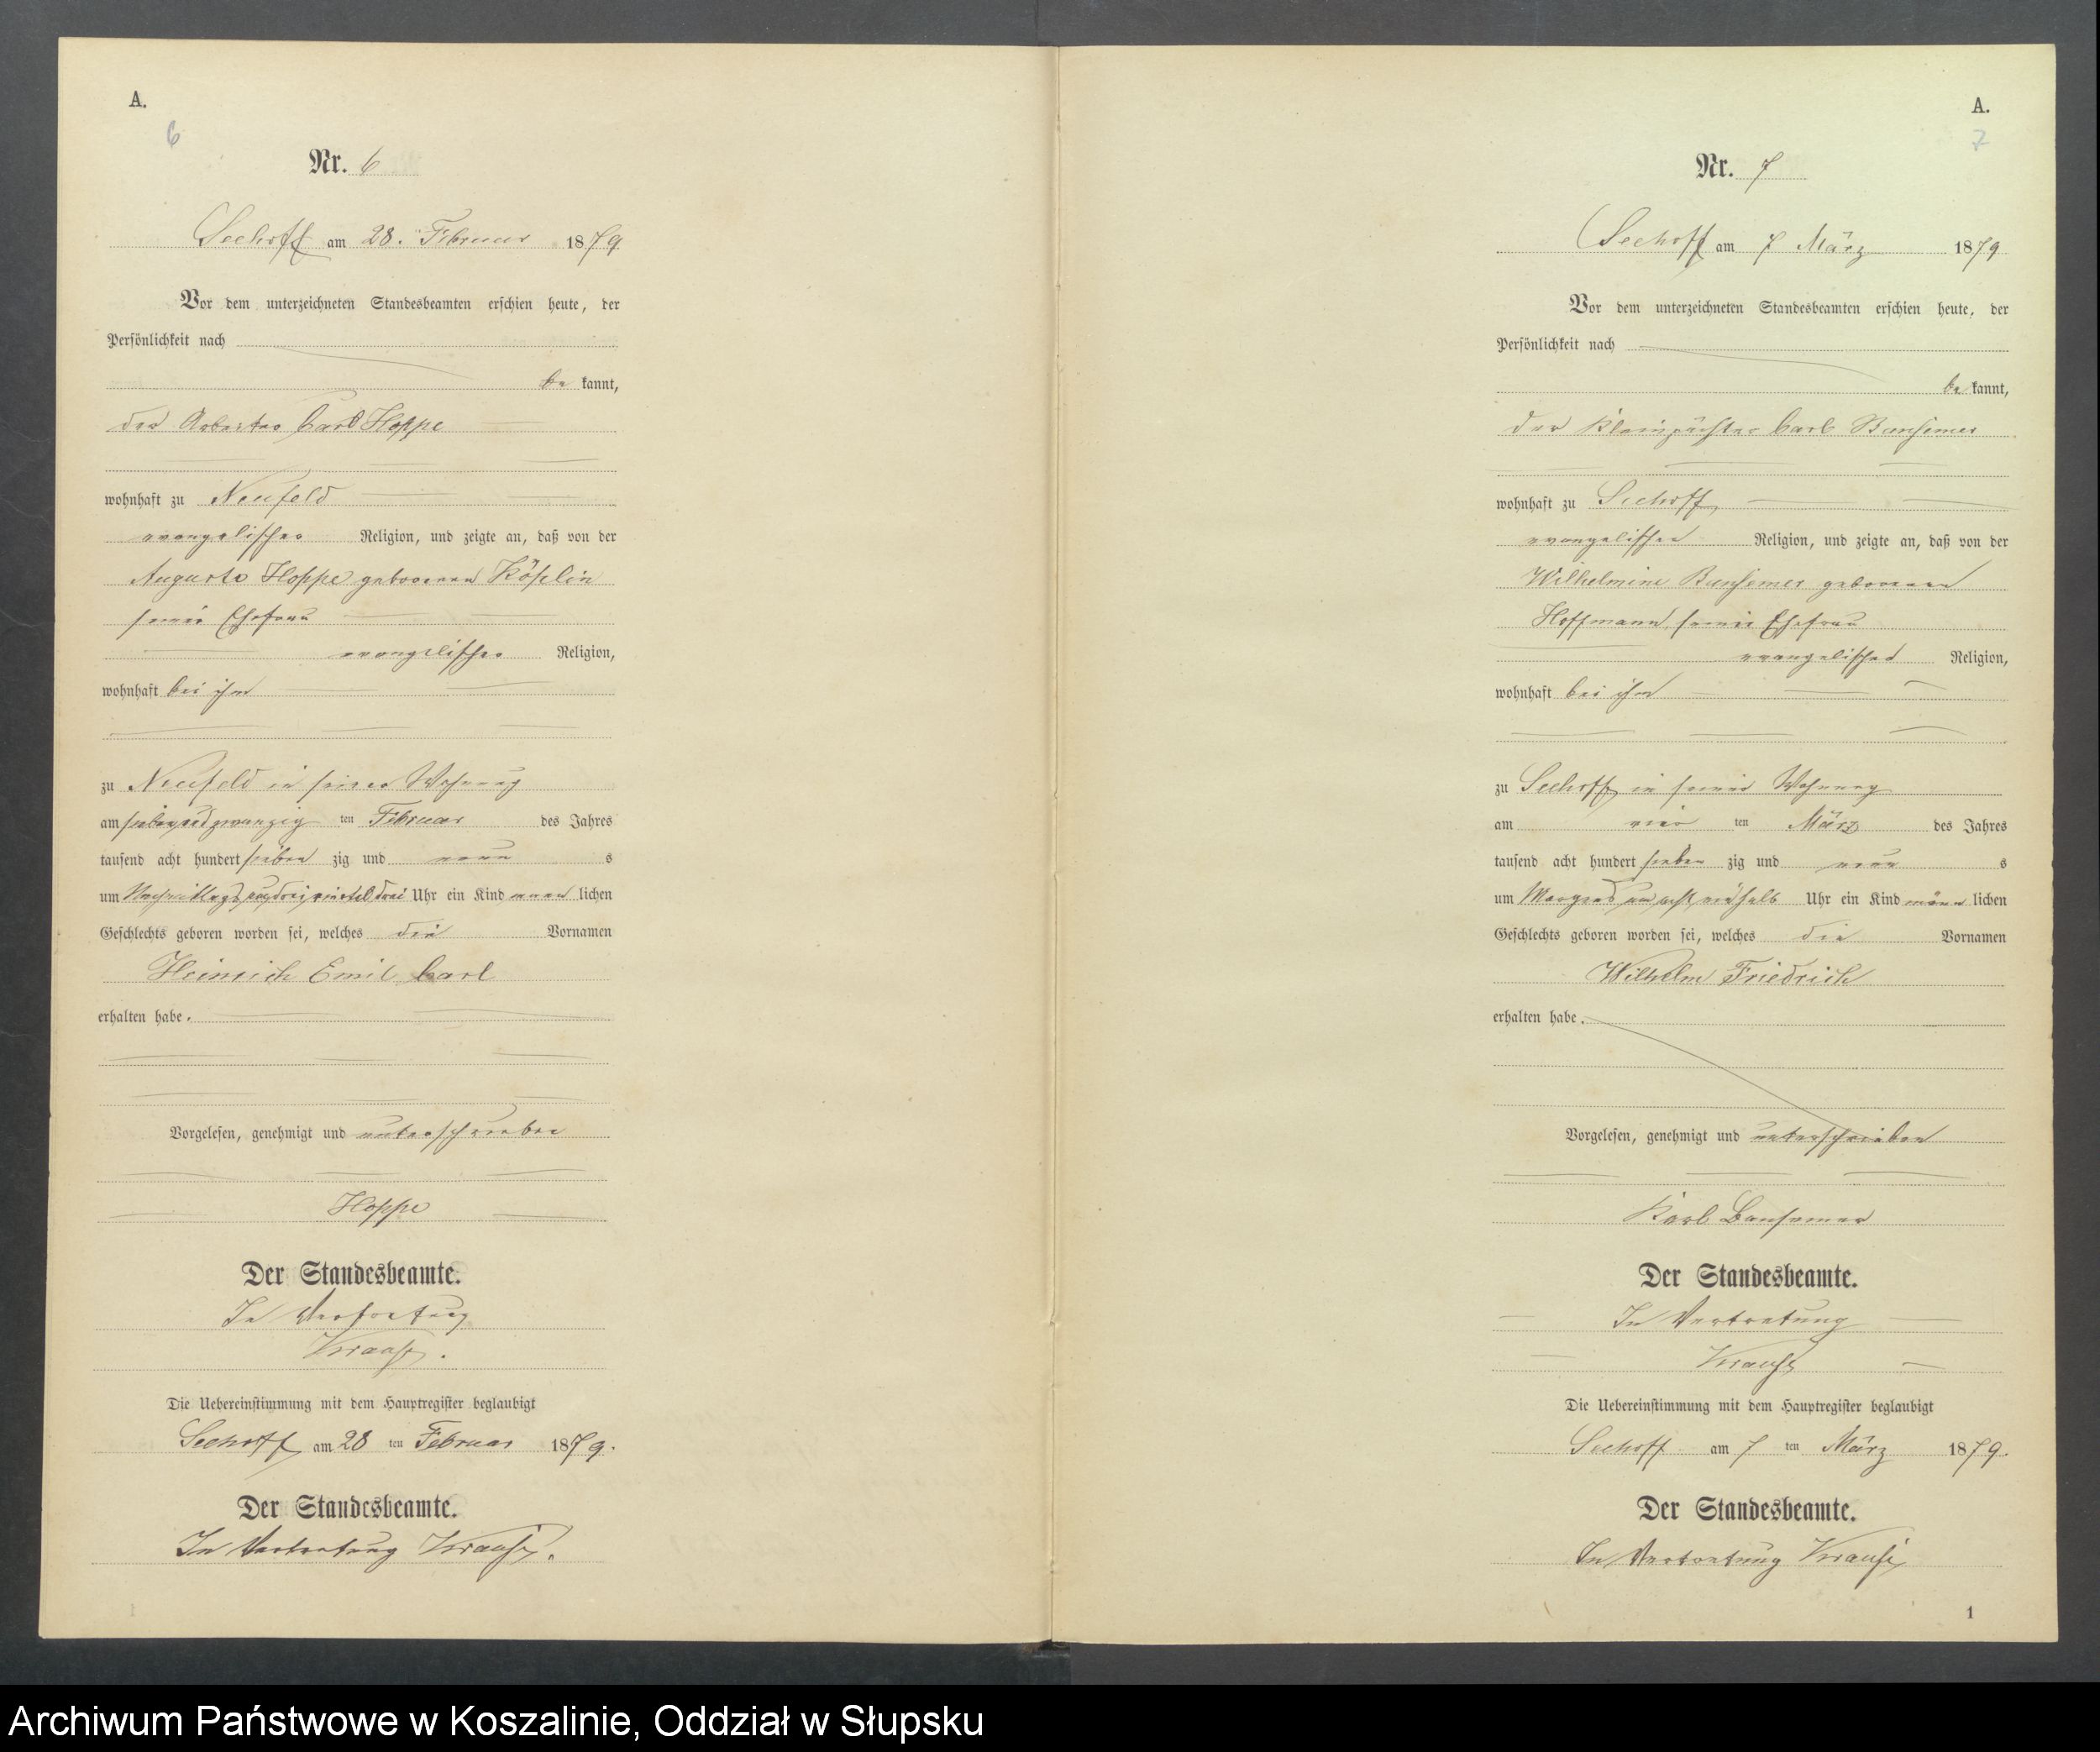 A.
6
Nr. 6
Seehoff am 28. Februar 1879
Vor dem unterzeichneten Standesbeamten erschien heute, der
Persönlichkeit nach
be kannt,
der Arbeiter Carl Hoppe
wohnhaft zu Neufeld
evangelischer Religion, und zeigte an, daß von der
Auguste Hoppe geborenen Köpelin
seiner Ehefrau
evangelischer Religion,
wohnhaft bei ihm
zu Neufeld in seiner Wohnung
am siebenundzwanzig ten Februar des Jahres
tausend acht hundert sieben zig und neun s
um Nachmittags um drei viertel drei Uhr ein Kind männ lichen
Geschlechts geboren worden sei, welches die Vornamen
Heinrich Emil Carl
erhalten habe.
Vorgelesen, genehmigt und unterschrieben
Hoppe
Der Standesbeamte.
In Vertretung
Krause.
Die Uebereinstimmung mit dem Hauptregister beglaubigt
Seehoff am 28 ten Februar 1879.
Der Standesbeamte.
In Vertretung Krause.
A.
7
Nr. 7
Seehoff am 7 März 1879
Vor dem unterzeichneten Standesbeamten erschien heute, der
Persönlichkeit nach
be kannt,
der Kleinpächter Carl Bansemer
wohnhaft zu Seehoff
evangelischer Religion, und zeigte an, daß von der
Wilhelmine Bansemer geborenen
Hoffmann, seiner Ehefrau
evangelischer Religion,
wohnhaft bei ihm
zu Seehoff in seiner Wohnung
am vier ten März des Jahres
tausend acht hundert sieben zig und neun s
um Morgens um acht einhalb Uhr ein Kind männ lichen
Geschlechts geboren worden sei, welches die Vornamen
Wilhelm Friedrich
erhalten habe.
Vorgelesen, genehmigt und unterschrieben
Karl Bansemer
Der Standesbeamte.
In Vertretung
Krause
Die Uebereinstimmung mit dem Hauptregister beglaubigt
Seehoff am 7 ten März 1879.
Der Standesbeamte.
In Vertretung Krause
1
Archiwum Państwowe w Koszalinie, Oddział w Słupsku